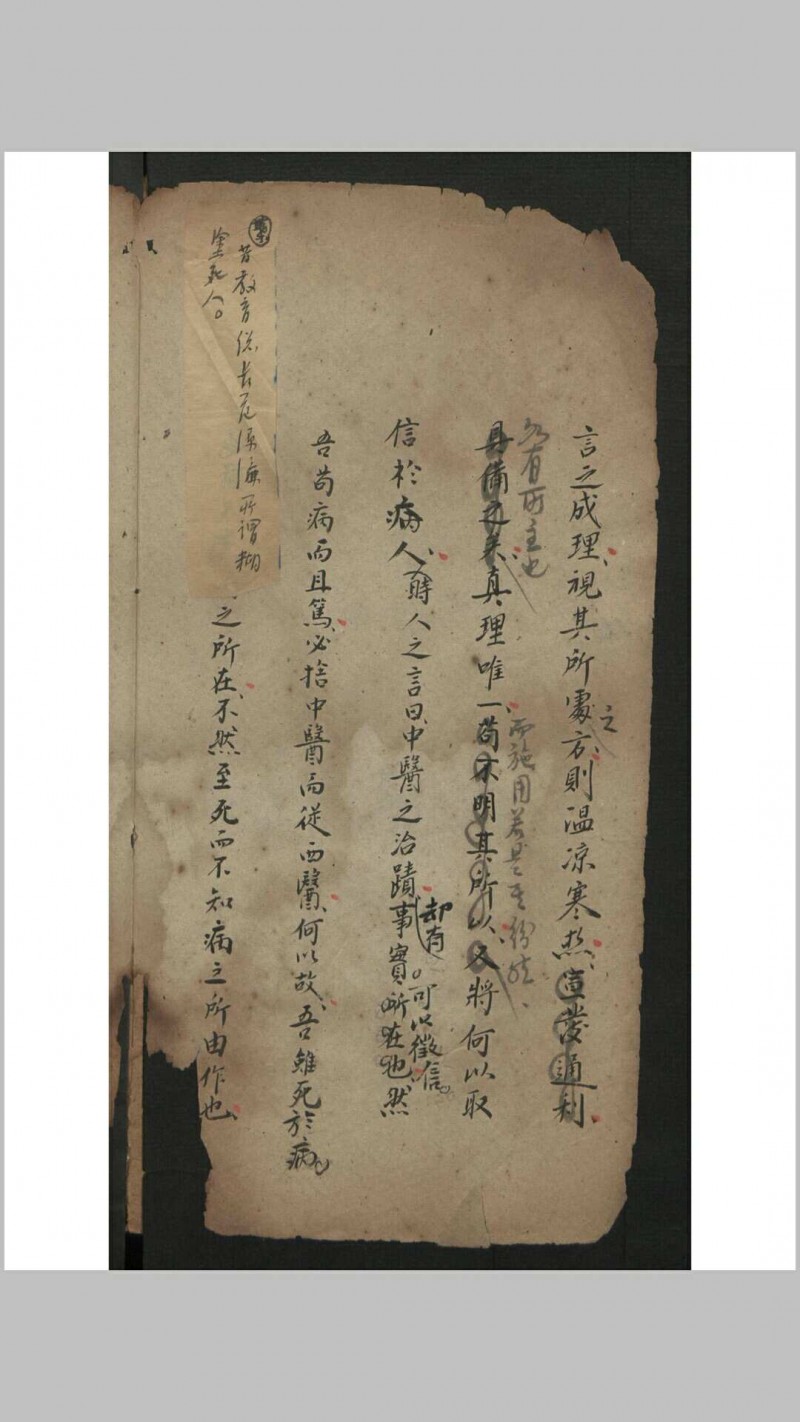 言之成理、視其所處之方、則温凉寒热、宣發通利、
各有所主也
具備又来真理唯一、苟不明其所以、又將何以取
而施用若是其紛歧、
信於病人、時人之言曰、中醫之治蹟、事實所在也、然
却有。可以徵信。
吾苟病而且篤、必捨中醫而從西醫、何以故、吾雖死於病、
之所在、不然至死而不知病之所由作也、
昔教育總長范源濂所謂糊
塗死人。